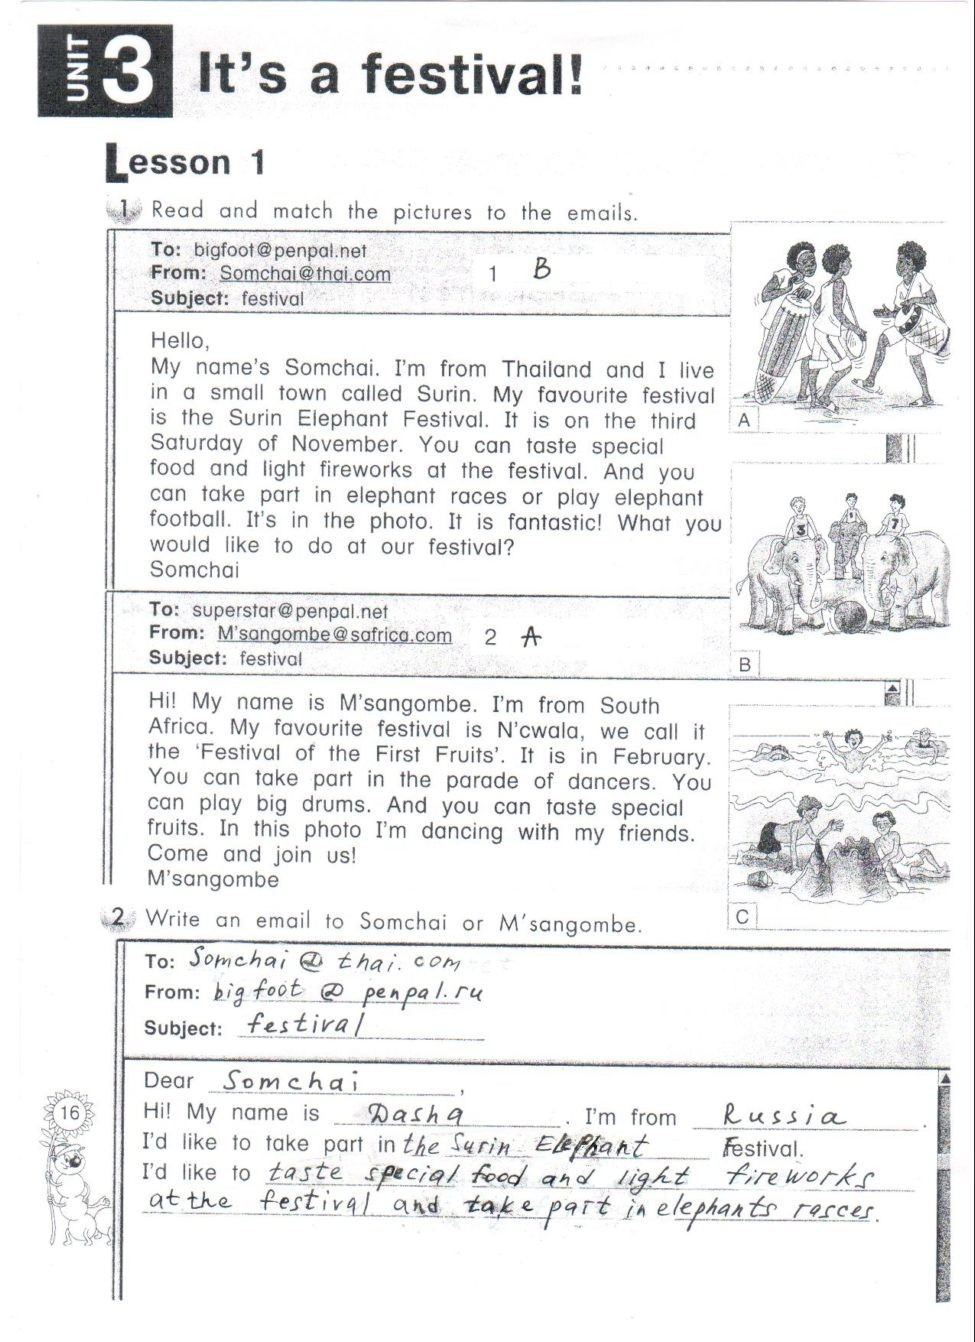 UNIT 3 It's a festival!
Lesson 1
1 Read and match the pictures to the emails.
To: bigfoot@penpal.net
From: Somchai@thai.com 1 B
Subject: festival
Hello,
My name's Somchai. I'm from Thailand and I live
in a small town called Surin. My favourite festival
is the Surin Elephant Festival. It is on the third
Saturday of November. You can taste special
food and light fireworks at the festival. And you
can take part in elephant races or play elephant
football. It's in the photo. It is fantastic! What you
would like to do at our festival?
Somchai
A
3
1
7
B
To: superstar@penpal.net
From: M'sangombe@safrica.com 2 A
Subject: festival
Hi! My name is M'sangombe. I'm from South
Africa. My favourite festival is N'cwala, we call it
the 'Festival of the First Fruits'. It is in February.
You can take part in the parade of dancers. You
can play big drums. And you can taste special
fruits. In this photo I'm dancing with my friends.
Come and join us!
M'sangombe
C
2 Write an email to Somchai or M'sangombe.
To: Somchai @ thai.com
From: bigfoot @ penpal.ru
Subject: festival
Dear Somchai,
Hi! My name is Dasha. I'm from Russia.
I'd like to take part in the Surin Elephant Festival.
I'd like to taste special food and light fireworks
at the festival and take part in elephants rasces.
16